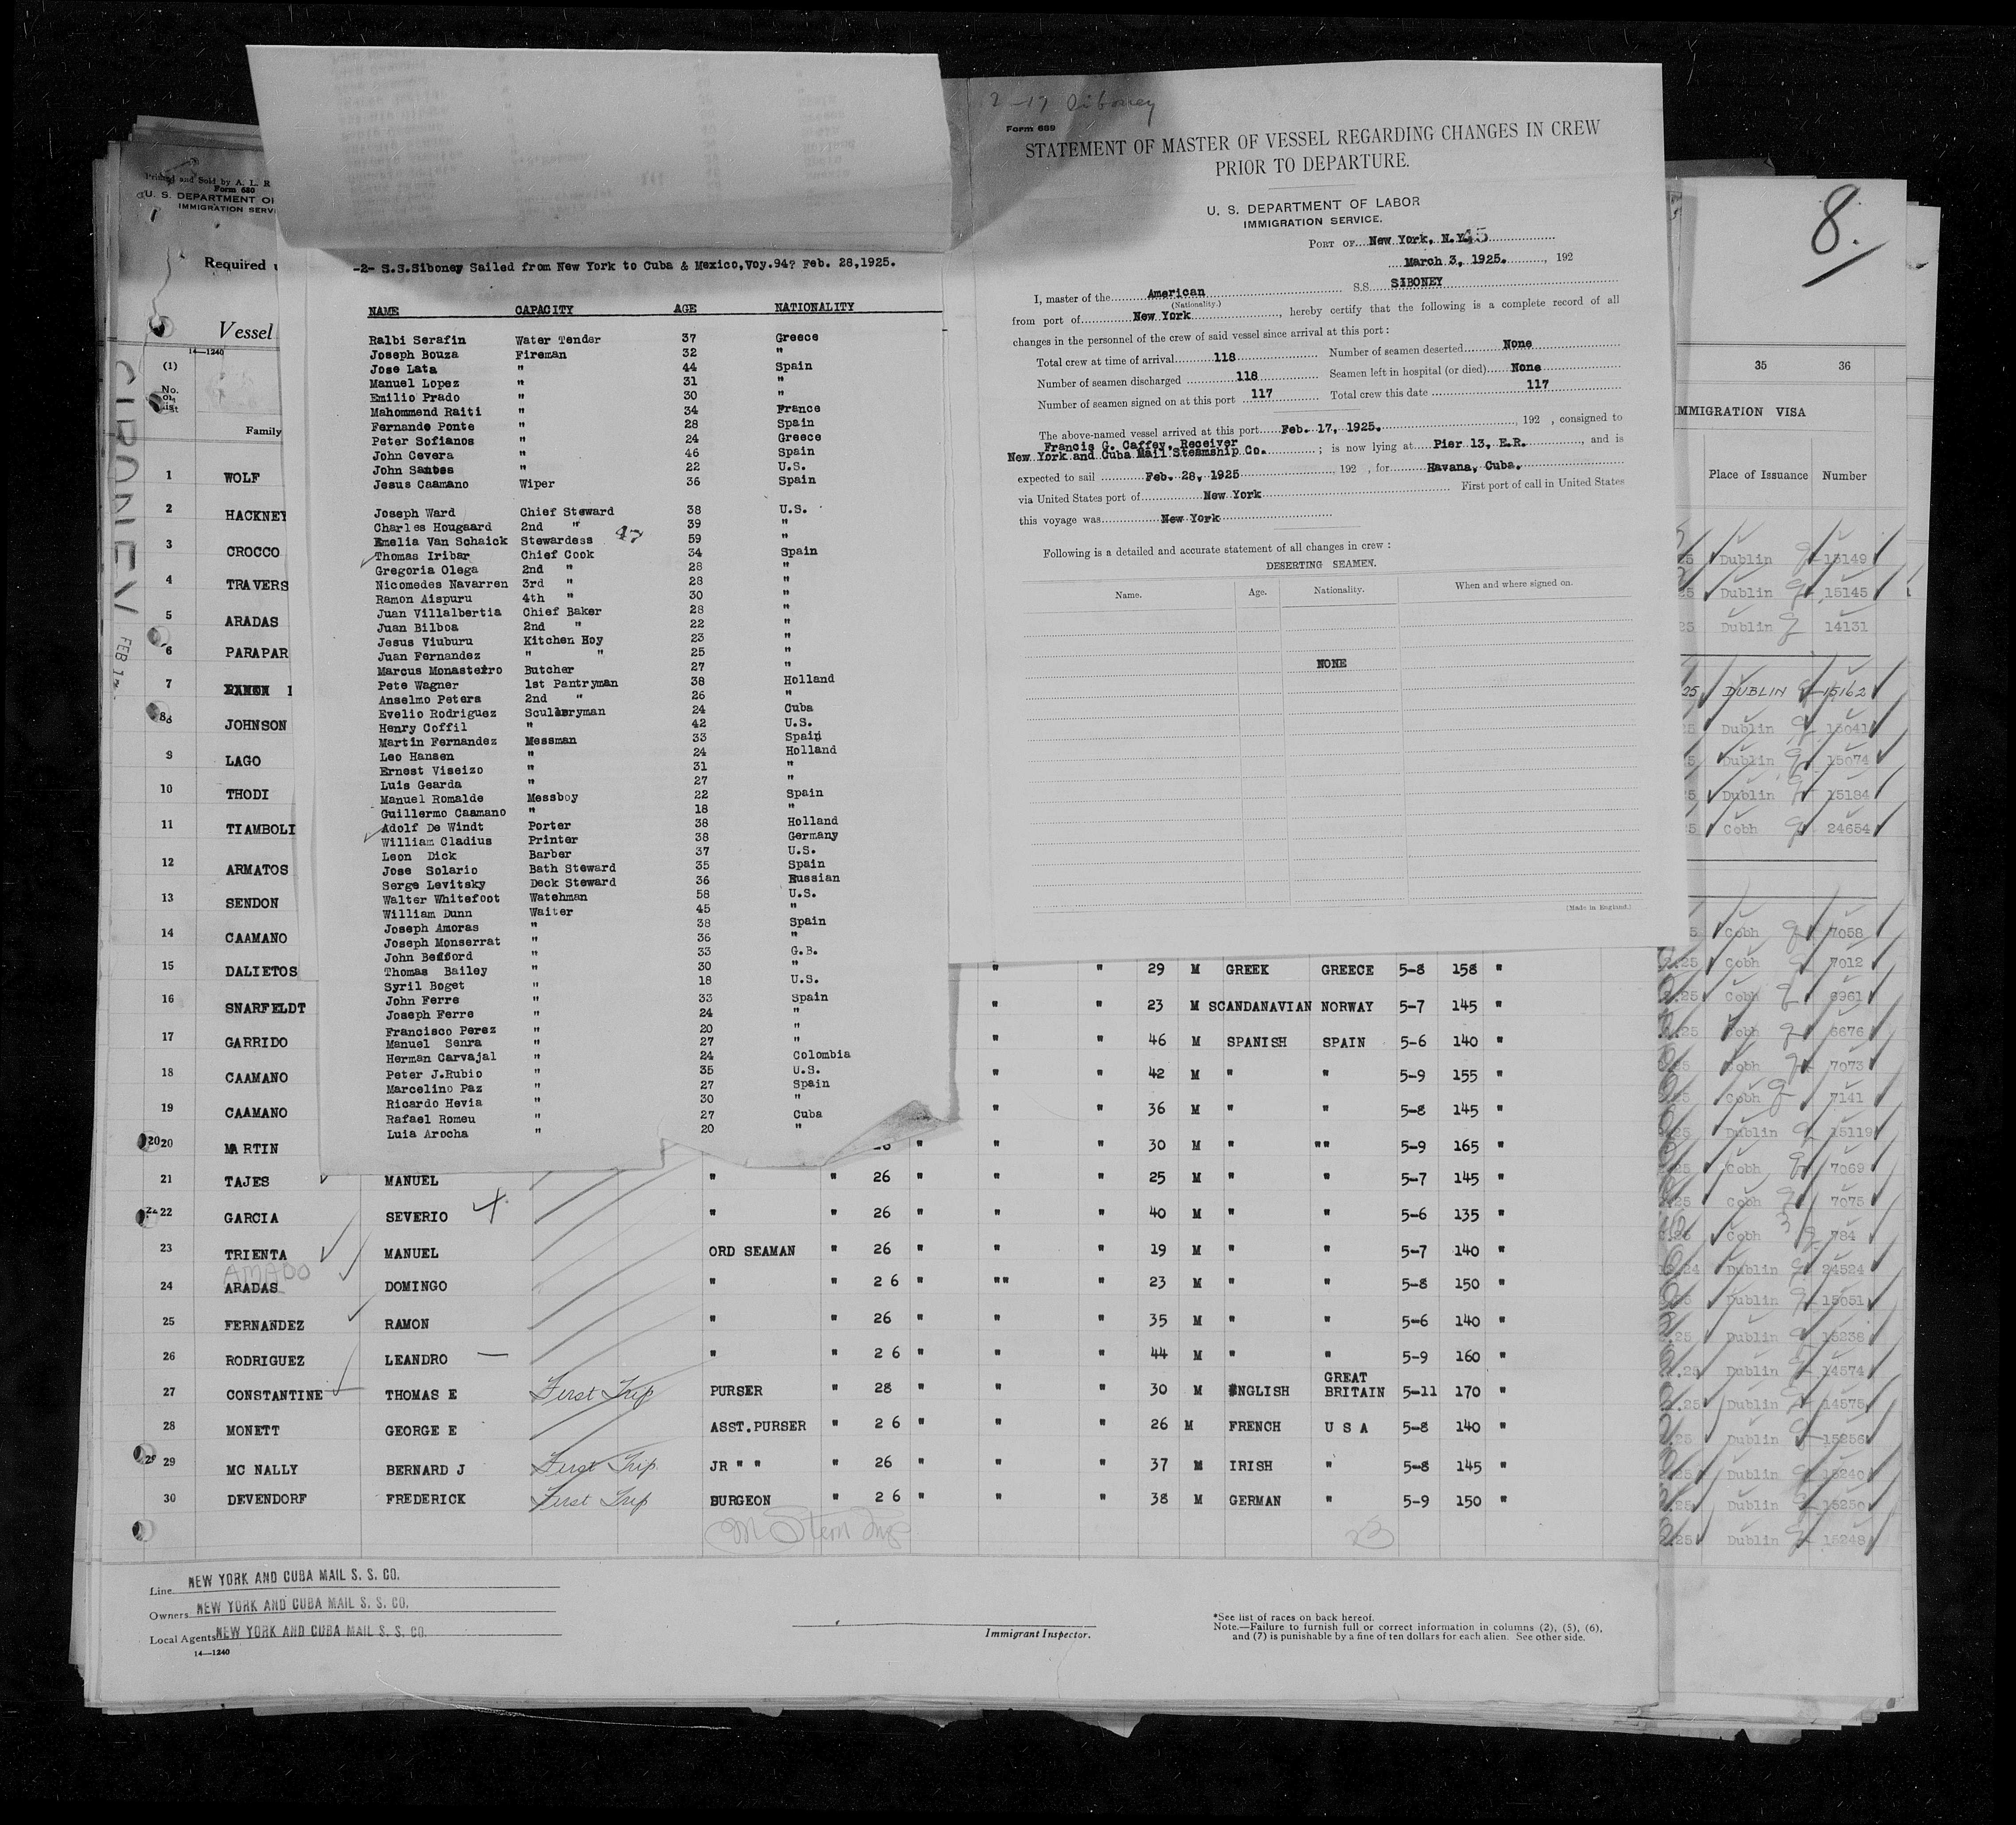 8.
Printed and Sold by A. L. R
Form 680
U. S. DEPARTMENT OF
IMMIGRATION SERVI
Required u
Vessel
14—1240
(1)
No.
on
list
Family
SIBONEY FEB 17
1 WOLF
2 HACKNEY
3 CROCCO
4 TRAVERS
5 ARADAS
6 PARAPAR
7 RAMON
8 JOHNSON
9 LAGO
10 THODI
11 TIAMBOLI
12 ARMATOS
13 SENDON
14 CAAMANO
15 DALIETOS
16 SNARFELDT
17 GARRIDO
18 CAAMANO
19 CAAMANO
20 MARTIN
-2- S.S.Siboney Sailed from New York to Cuba & Mexico,Voy.94? Feb. 28,1925.
NAME CAPACITY AGE NATIONALITY
Ralbi Serafin Water Tender 37 Greece
Joseph Bouza Fireman 32 "
Jose Lata " 44 Spain
Manuel Lopez " 31 "
Emilio Prado " 30 "
Mahommend Raiti " 34 France
Fernande Ponte " 28 Spain
Peter Sofianos " 24 Greece
John Cevera " 46 Spain
John Santos " 22 U.S.
Jesus Caamano Wiper 36 Spain
Joseph Ward Chief Steward 38 U.S.
Charles Hougaard 2nd " 39 "
Emelia Van Schaick Stewardess 47 59 "
Thomas Iribar Chief Cook 34 Spain
Gregoria Olega 2nd " 28 "
Nicomedes Navarren 3rd " 28 "
Ramon Aispuru 4th " 30 "
Juan Villalbertia Chief Baker 28 "
Juan Bilboa 2nd " 22 "
Jesus Viuburu Kitchen Hoy 23 "
Juan Fernandez " " 25 "
Marcus Monasteiro Butcher 27 "
Pete Wagner 1st Pantryman 38 Holland
Anselmo Petera 2nd " 26 "
Evelio Rodriguez Sculleryman 24 Cuba
Henry Coffil " 42 U.S.
Martin Fernandez Messman 33 Spain
Leo Hansen " 24 Holland
Ernest Viseizo " 31 "
Luis Gearda " 27 "
Manuel Romalde Messboy 22 Spain
Guillermo Caamano " 18 "
Adolf De Windt Porter 38 Holland
William Cladius Printer 38 Germany
Leon Dick Barber 37 U.S.
Jose Solario Bath Steward 35 Spain
Serge Levitsky Deck Steward 36 Russian
Walter Whitefoot Watchman 58 U.S.
William Dunn Waiter 45 "
Joseph Amoras " 38 Spain
Joseph Monserrat " 36 "
John Bedford " 33 G.B.
Thomas Bailey " 30 "
Syril Boget " 18 U.S.
John Ferre " 33 Spain
Joseph Ferre " 24 "
Francisco Perez " 20 "
Manuel Senra " 27 "
Herman Carvajal " 24 Colombia
Peter J.Rubio " 35 U.S.
Marcelino Paz " 27 Spain
Ricardo Hevia " 30 "
Rafael Romeu " 27 Cuba
Luia Arocha " 20 "
2-17 Siboney
Form 689
STATEMENT OF MASTER OF VESSEL REGARDING CHANGES IN CREW
PRIOR TO DEPARTURE.
U. S. DEPARTMENT OF LABOR
IMMIGRATION SERVICE.
PORT OF New York, N.Y. 45
March 3, 1925. , 192
I, master of the American S.S. SIBONEY
(Nationality.)
from port of New York , hereby certify that the following is a complete record of all
changes in the personnel of the crew of said vessel since arrival at this port:
Total crew at time of arrival 118 Number of seamen deserted None
Number of seamen discharged 118 Seamen left in hospital (or died) None
Number of seamen signed on at this port 117 Total crew this date 117
The above-named vessel arrived at this port Feb. 17, 1925. , 192 , consigned to
Francis G. Caffey, Receiver
New York and Cuba Mail Steamship Co. ; is now lying at Pier 13, E.R. , and is
expected to sail Feb. 28, 1925 , 192 , for Havana, Cuba.
via United States port of New York First port of call in United States
this voyage was New York
Following is a detailed and accurate statement of all changes in crew:
DESERTING SEAMEN.
Name. Age. Nationality. When and where signed on.
NONE
(Made in England.)
" " 29 M GREEK GREECE 5-8 158 "
" " 23 M SCANDANAVIAN NORWAY 5-7 145 "
" " 46 M SPANISH SPAIN 5-6 140 "
" " 42 M " " 5-9 155 "
" " 36 M " " 5-8 145 "
" " 30 M " "" 5-9 165 "
21 TAJES MANUEL " " 26 " " " 25 M " " 5-7 145 "
22 GARCIA SEVERIO " " 26 " " " 40 M " " 5-6 135 "
23 TRIENTA MANUEL ORD SEAMAN " 26 " " " 19 M " " 5-7 140 "
AMADO
24 ARADAS DOMINGO " " 2 6 " "" " 23 M " " 5-8 150 "
25 FERNANDEZ RAMON " " 26 " " " 35 M " " 5-6 140 "
26 RODRIGUEZ LEANDRO " " 2 6 " " " 44 M " " 5-9 160 "
27 CONSTANTINE THOMAS E First Trip PURSER " 28 " " " 30 M ENGLISH GREAT BRITAIN 5-11 170 "
28 MONETT GEORGE E ASST.PURSER " 2 6 " " " 26 M FRENCH U S A 5-8 140 "
29 MC NALLY BERNARD J First Trip JR " " " 26 " " " 37 M IRISH " 5-8 145 "
30 DEVENDORF FREDERICK First Trip SURGEON " 2 6 " " " 38 M GERMAN " 5-9 150 "
Line NEW YORK AND CUBA MAIL S. S. CO.
Owners NEW YORK AND CUBA MAIL S. S. CO.
Local Agents NEW YORK AND CUBA MAIL S. S. CO.
14—1240
Immigrant Inspector.
*See list of races on back hereof.
Note.—Failure to furnish full or correct information in columns (2), (5), (6),
and (7) is punishable by a fine of ten dollars for each alien. See other side.
35 36
IMMIGRATION VISA
Place of Issuance Number
25 Dublin 15149
25 Dublin 15145
25 Dublin 14131
25 DUBLIN 15162
25 Dublin 15041
5 Dublin 15074
5 Dublin 15184
5 Cobh 24654
5 Cobh 7058
25 Cobh 7012
25 Cobh 6961
25 Cobh 6676
25 Cobh 7073
5 Cobh 7141
25 Dublin 15119
25 Cobh 7069
25 Cobh 7075
Cobh 784
24 Dublin 24524
Dublin 15051
25 Dublin 15238
Dublin 14574
25 Dublin 14575
25 Dublin 15256
25 Dublin 15240
25 Dublin 15250
25 Dublin 15248